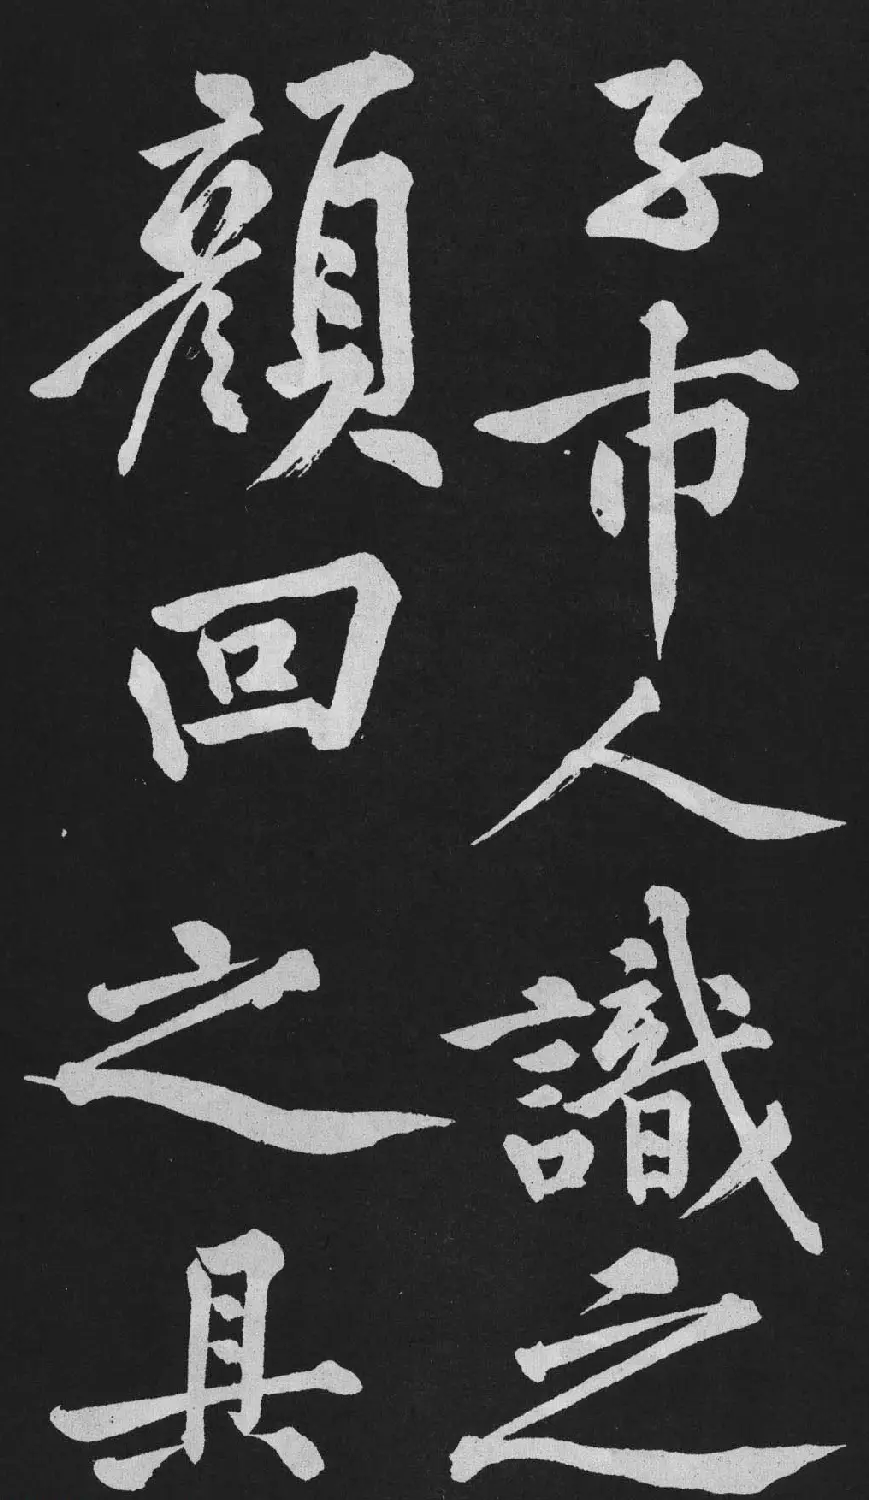 子市人識之
顏回之具